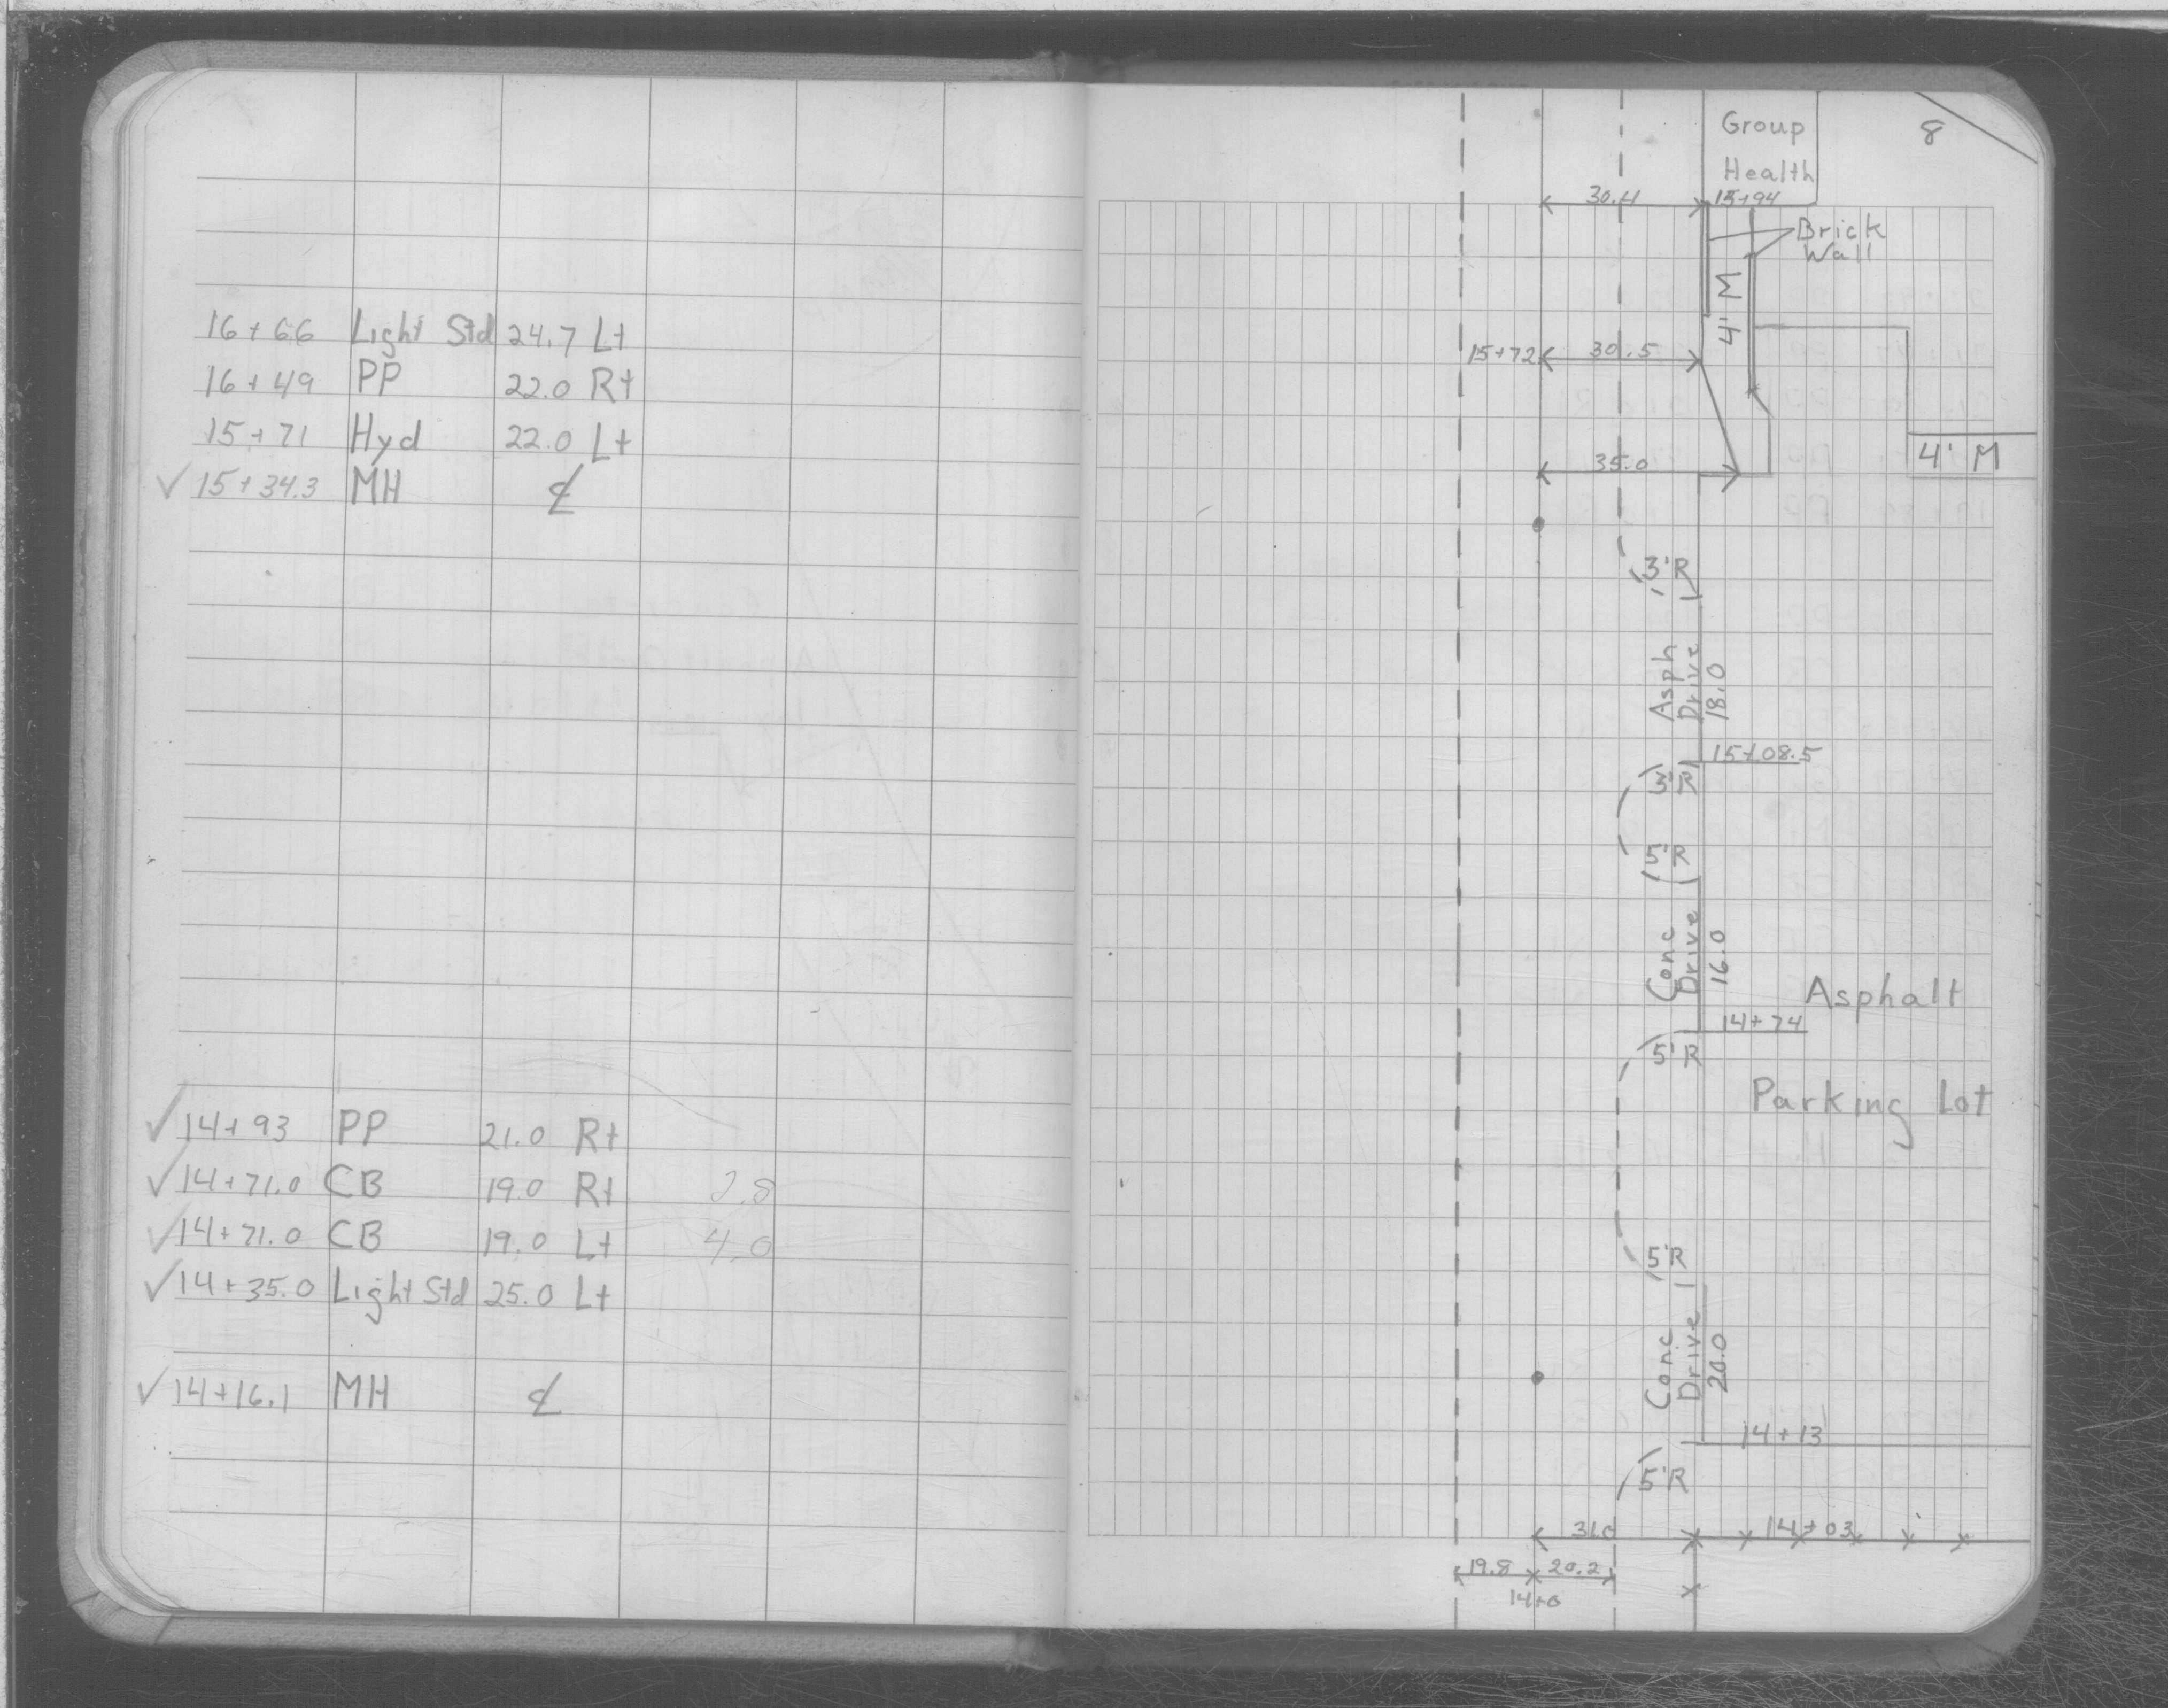 16+66 Light Std 24.7 Lt
16+49 PP 22.0 Rt
15+71 Hyd 22.0 Lt
✓ 15+34.3 MH ℄
✓ 14+93 PP 21.0 Rt
✓ 14+71.0 CB 19.0 Rt 2.8
✓ 14+71.0 CB 19.0 Lt 4.0
✓ 14+35.0 Light Std 25.0 Lt
✓ 14+16.1 MH ℄
8
Group
Health
30.4 15+94
Brick
Wall
4' M
15+72 30.5
4' M
35.0
3'R
Asph
Drive
18.0
15+08.5
3'R
5'R
Conc
Drive
16.0
Asphalt
14+74
5'R
Parking Lot
5'R
Conc
Drive
20.0
14+13
5'R
31.0 14+03
19.8 20.2
14+0